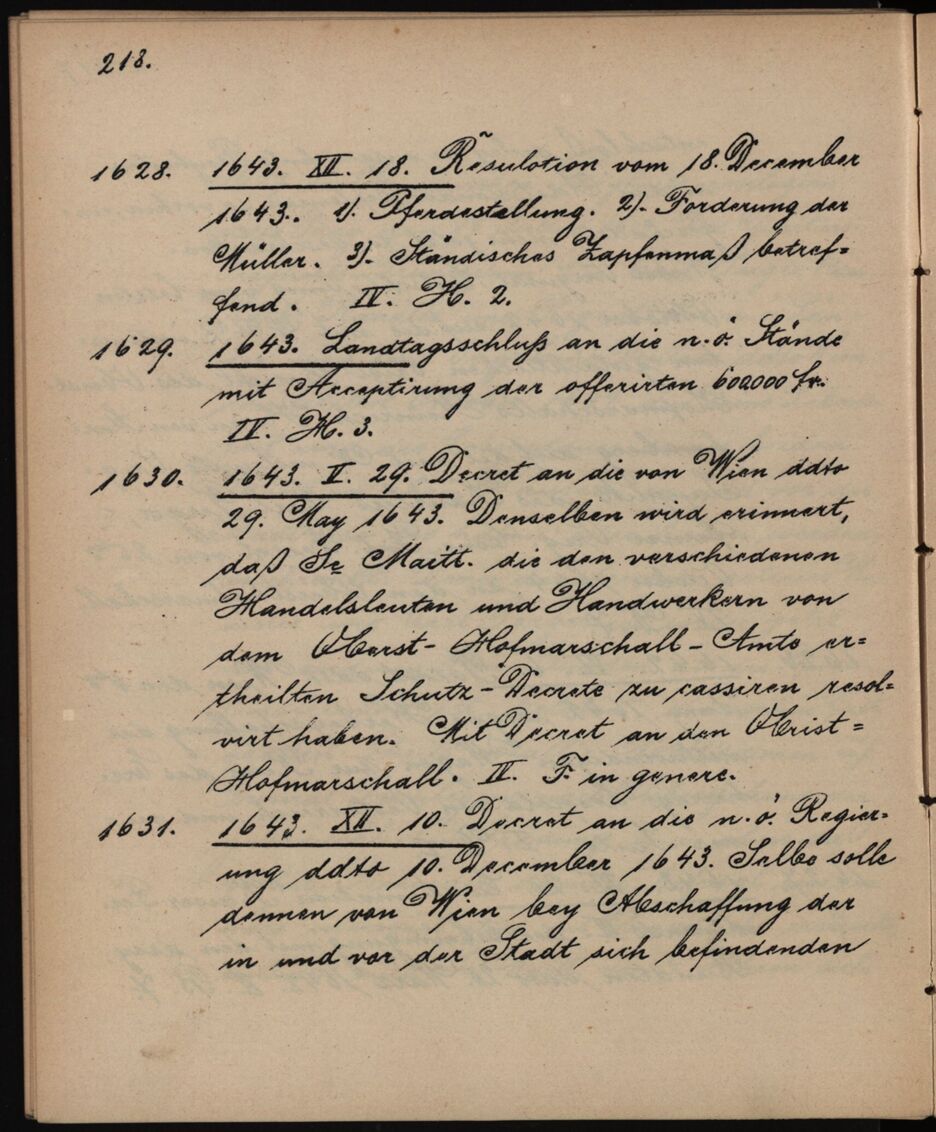 218.
1628. 1643. XII. 18. Resulotion vom 18. December
1643. 1). Pferdestellung. 2). Forderung der
Müller. 3). Ständisches Zapfenmaß betref=
fend. IV. H. 2.
1629. 1643. Landtagsschluß an die n. ö. Stände
mit Acceptirung der offerirten 600.000 fr.
IV. H. 3.
1630. 1643. V. 29. Decret an die von Wien ddto
29. May 1643. Denselben wird erinnert,
daß Se Maitt. die den verschiedenen
Handelsleuten und Handwerkern von
dem Oberst-Hofmarschall-Amte er=
theilten Schutz-Decrete zu cassiren resol=
virt haben. Mit Decret an den Obrist=
Hofmarschall. IV. F. in genere.
1631. 1643. XII. 10. Decret an die n. ö. Regier=
ung ddto 10. December 1643. Selbe solle
dennen von Wien bey Abschaffung der
in und vor der Stadt sich befindenden